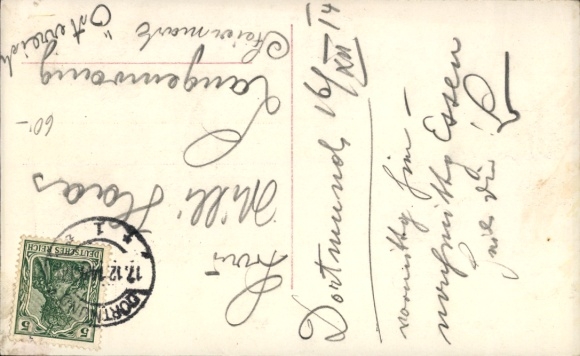 Dortmund 16/XII 14
vormittg
nachmittg Essen
Frau
Milli Haas
Langenwang
Steiermark
Österreich
60.-
DEUTSCHES REICH
5 5
DORTMUND
17.12.14
* 1 *